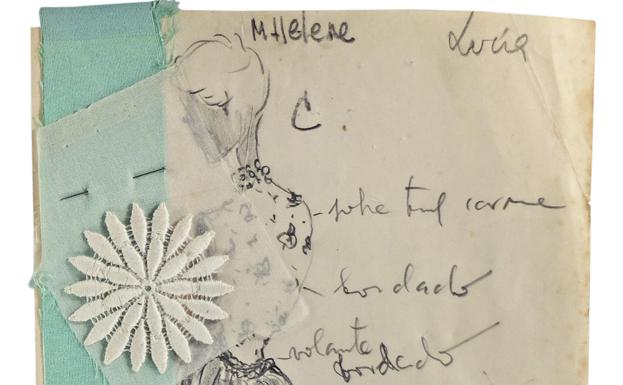 MHelene
Lucía
C
tul carne
bordado
volante
bordado